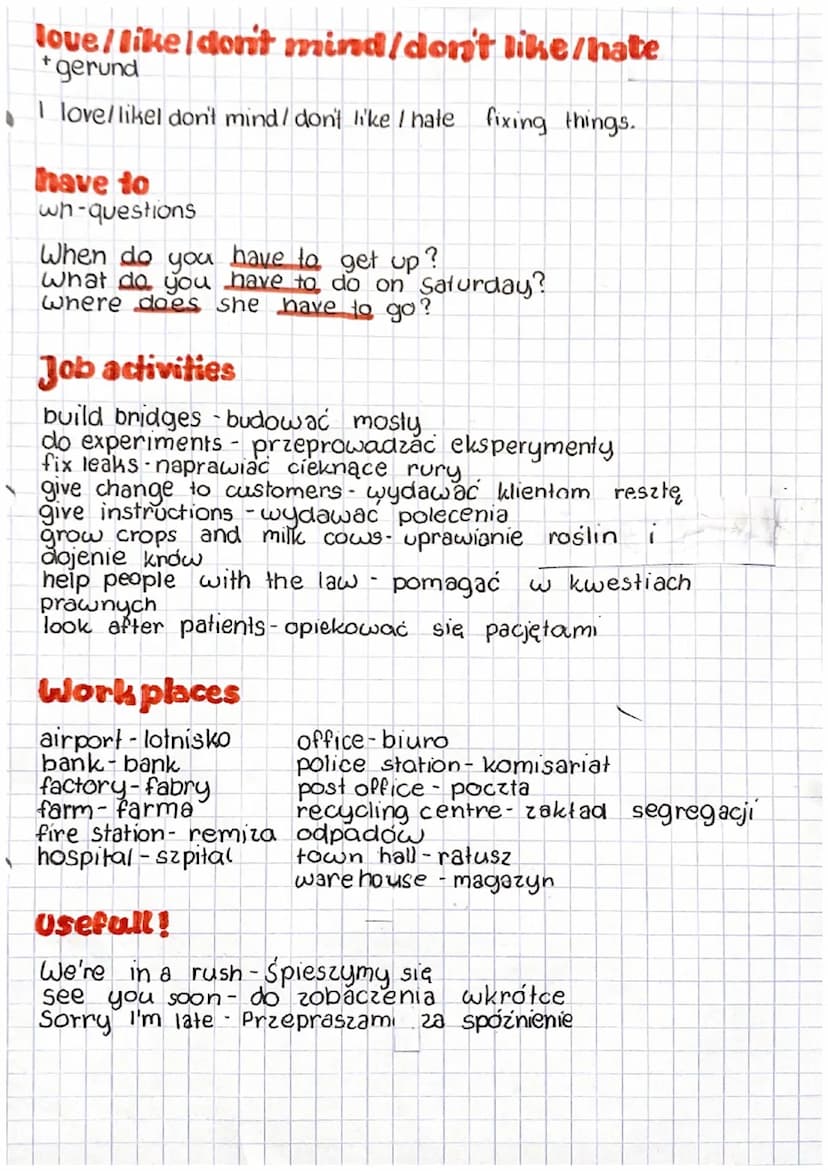 love/like/don't mind/don't like/hate
+ gerund
I love/like/don't mind/don't like/hate fixing things.
have to
wh-questions
When do you have to get up?
What do you have to do on Saturday?
where does she have to go?
Job activities
build bridges - budować mosty
do experiments - przeprowadzać eksperymenty
fix leaks - naprawiać cieknące rury
give change to customers - wydawać klientom resztę
give instructions - wydawać polecenia
grow crops and milk cows - uprawianie roślin i
dojenie krów
help people with the law - pomagać w kwestiach
prawnych
look after patients - opiekować się pacjętami
Work places
airport - lotnisko
bank - bank
factory - fabry
farm - farma
fire station - remiza
hospital - szpital
office - biuro
police station - komisariat
post office - poczta
recycling centre - zakład segregacji
odpadów
town hall - ratusz
warehouse - magazyn
Usefull!
We're in a rush - Śpieszymy się
see you soon - do zobaczenia wkrótce
Sorry I'm late - Przepraszam za spóźnienie